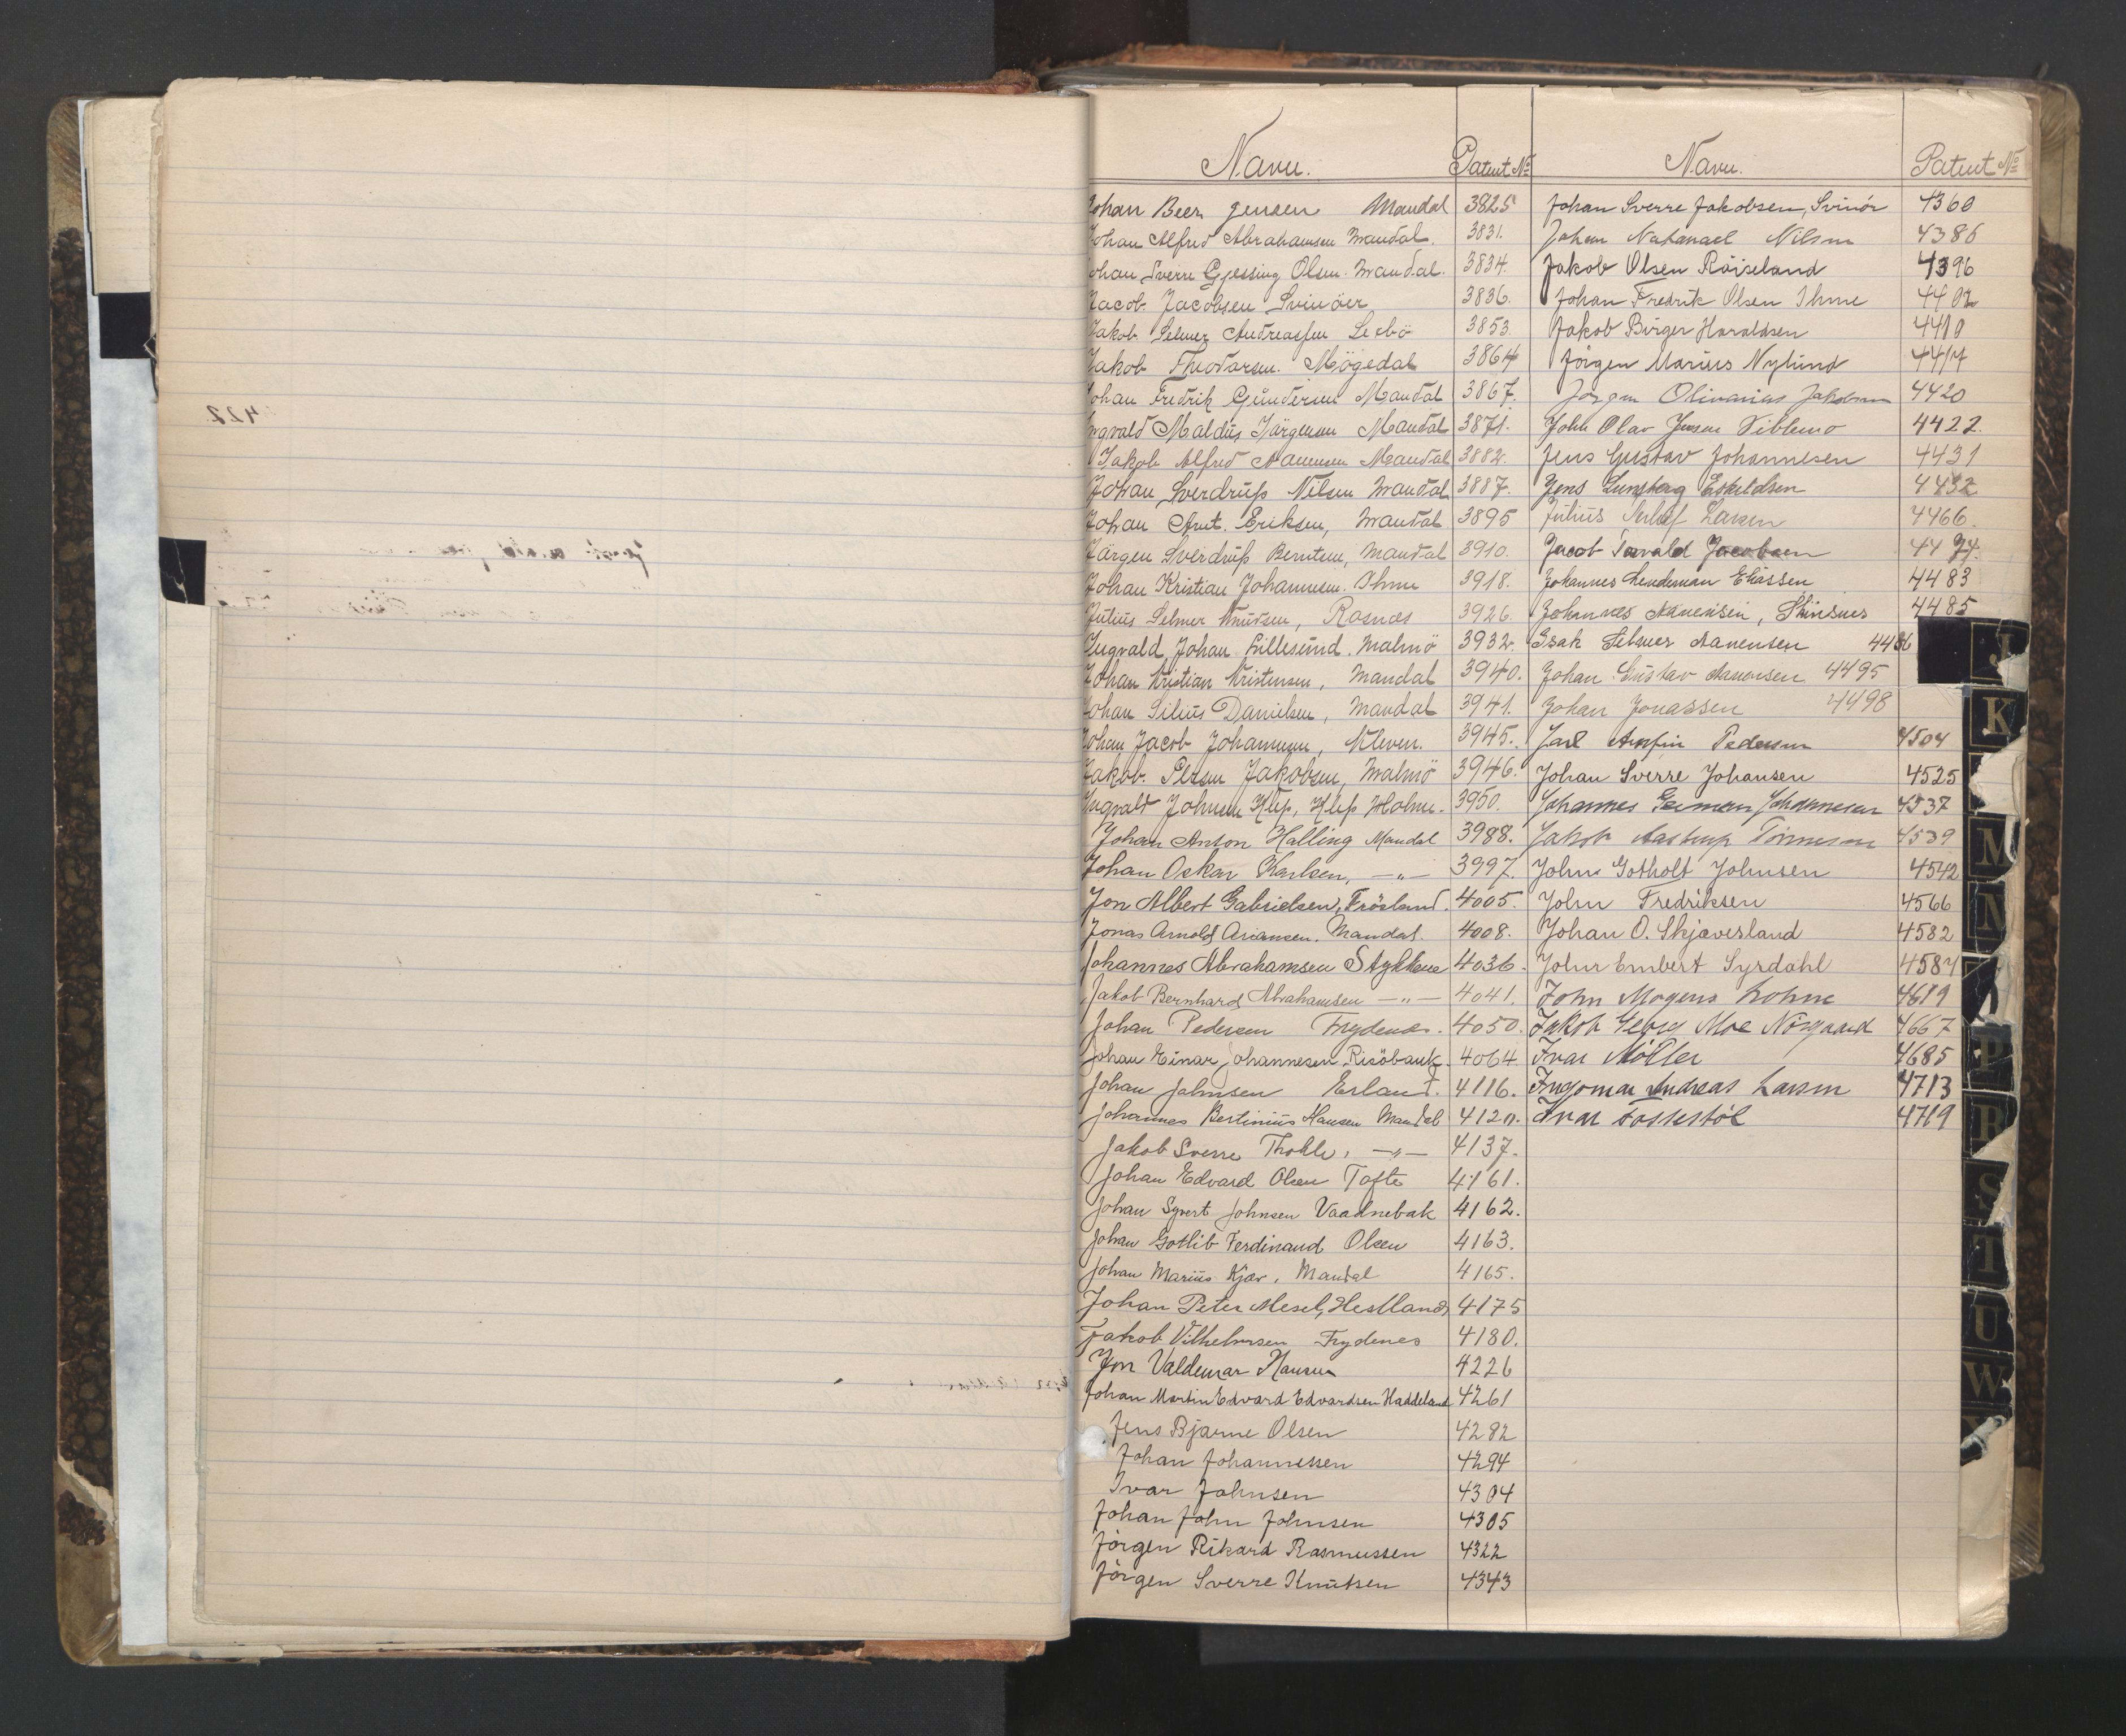 Navn. Patent No
Johan Beer Jensen Mandal 3825
Johan Alfred Abrahamsen Mandal. 3831.
Johan Sverre Gjessing Olsen. Mandal. 3834.
Jacob. Jacobsen Svinöer 3836.
Jakob Selmer Andreassen 3853.
Jakob Theodorsen. Mögedal 3864
Johan Fredrik Gundersen Mandal 3867.
Ingvald Maldus Jörgensen Mandal 3871.
Jakob Alfred Aanensen Mandal 3882.
Johan Sverdrup Nilsen Mandal 3887.
Johan Arnt. Eriksen, Mandal 3895
Jörgen Sverdrup Berntsen, Mandal 3910.
Johan Kristian Johannesen. 3918.
Julius Selmer Knudsen, Rosnæs 3926.
Ingvald Johan Lillesund. Malmö 3932.
Johan Kristian Kristensen, Mandal 3940.
Johan Silius Danielsen, Mandal 3941.
Johan Jacob Johannesen, Kleven. 3945.
Jakob. Jakobsen, Malmö 3946.
Ingvald Johnsen Klep, Klep Holme. 3950.
Johan Anton Halling Mandal 3988.
Johan Oskar Karlsen, —"— 3997.
Jon Albert Gabrielsen, Frösland. 4005.
Jonas Arnold Ariansen. Mandal. 4008.
Johannes Abrahamsen Stykkene 4036.
Jakob Bernhard Abrahamsen —"— 4041.
Johan Pedersen Frydenes. 4050.
Johan Einar Johannesen Risöbank. 4064
Johan Johnsen Erland. 4116.
Johannes Bertinius Hansen Mandal 4120.
Jakob Sverre Thokle, —"— 4137.
Johan Edvard Olsen Tofte 4161.
Johan Syvert Johnsen Vaadnebak 4162.
Johan Gotlib Ferdinand Olsen 4163.
Johan Marius Kjær, Mandal 4165.
Johan Peter Mesel, Hestland, 4175
Jakob Vilhelmsen Frydenes 4180.
Jon Valdemar Hansen 4226
Johan Martin Edvard Edvardsen Haddeland 4261
Jens Bjarne Olsen 4282
Johan Johannessen 4294
Ivar Johnsen 4304
Johan John Johnsen 4305
Jörgen Rikard Rasmussen 4322
Jörgen Sverre Knutsen 4343
Navn. Patent No
Johan Sverre Jakobsen, Svinör 4360
Johan Natanael Nilsen 4386
Jakob Olsen Röiseland 4396
Johan Fredrik Olsen Ihme 4402
Jakob Birger Haraldsen 4410
Jörgen Marius Nylund 4414
Jörgen Olivarius Jakobsen 4420
John Olav Jensen 4422.
Jens Gustav Johannesen 4431
Jens Lunsberg Eskildsen 4432
Julius Larsen 4466.
Jacob Torvald Jacobsen 4474.
Johannes Lendeman Eliassen 4483
Johannes Aanensen, Skinsnes 4485
Isak Selmer Aanensen 4486
Johan Gustav Aanensen 4495
Johan Jonassen 4498
Jarl Arnfin Pedersen 4504
Johan Sverre Johansen 4525
Johannes German Johannesen 4537
Jakob Aastrup Tönnesen 4539
John Gotholt Johnsen 4542
John Fredriksen 4566
Johan O. Skjæversland 4582
John Embert Syrdahl 4584
John Mogens Lohne 4619
Jakob Georg Moe Nörgaard 4667
Ivar Möller 4685
Ingomar Andreas Larsen 4713
Ivar Fossestöl 4719
J
K
M
N
P
R
S
T
U
W